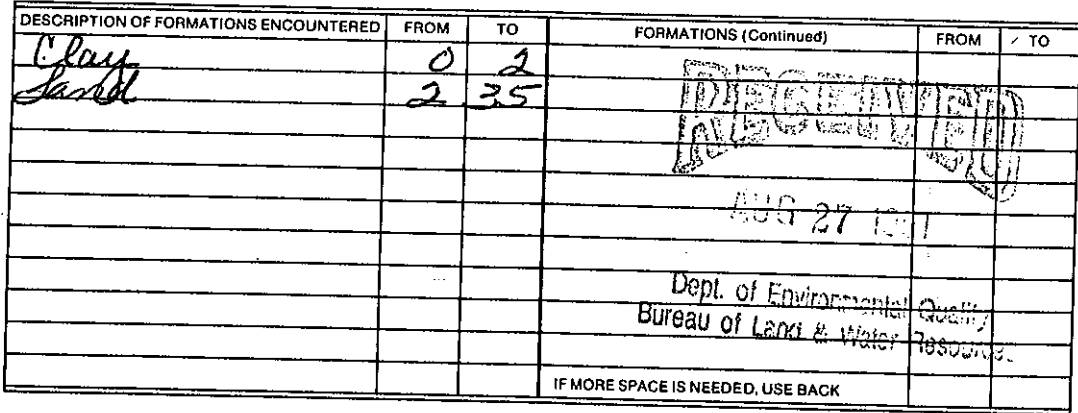 DESCRIPTION OF FORMATIONS ENCOUNTERED FROM TO FORMATIONS (Continued) FROM TO
Clay 0 2
Sand 2 35
RECEIVED
AUG 27
Dept. of Environmental Quality
Bureau of Land & Water Resources
IF MORE SPACE IS NEEDED, USE BACK